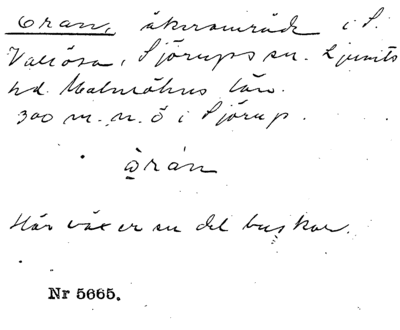 Oran, åkerområde i S.
Vallösa, Sjörups sn. Ljunits
hd. Malmöhus län.
300 m. n. ö i Sjörup.
òrán
Här växer en del buskar.
Nr 5665.